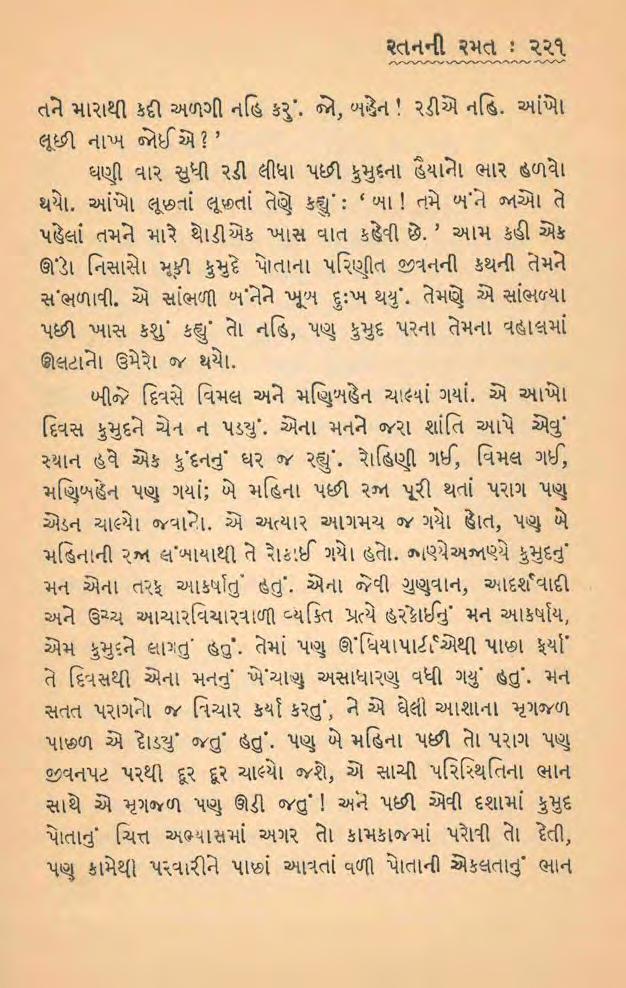 રતનની રમત : ૨૨૧
તને મારાથી કદી અળગી નહિ કરું. જો, બહેન! રડીએ નહિ. આંખો
લૂછી નાખ જોઈએ?’
ઘણી વાર સુધી રડી લીધા પછી કુમુદના હૈયાનો ભાર હળવો
થયો. આંખો લૂછતાં લૂછતાં તેણે કહ્યું: ‘બા! તમે બંને જાઓ તે
પહેલાં તમને મારે થોડીએક ખાસ વાત કહેવી છે.’ આમ કહી એક
ઊંડો નિસાસો મૂકી કુમુદે પોતાના પરિણીત જીવનની કથની તેમને
સંભળાવી. એ સાંભળી બંનેને ખૂબ દુઃખ થયું. તેમણે એ સાંભળ્યા
પછી ખાસ કશું કહ્યું તો નહિ, પણ કુમુદ પરના તેમના વહાલમાં
ઊલટાનો ઉમેરો જ થયો.
બીજે દિવસે વિમલ અને મણિબહેન ચાલ્યાં ગયાં. એ આખો
દિવસ કુમુદને ચેન ન પડ્યું. એના મનને જરા શાંતિ આપે એવું
સ્થાન હવે એક કુંદનનું ઘર જ રહ્યું. રોહિણી ગઈ, વિમલ ગઈ,
મણિબહેન પણ ગયાં; બે મહિના પછી રજા પૂરી થતાં પરાગ પણ
એડન ચાલ્યો જવાનો. એ અત્યાર આગમચ જ ગયો હોત, પણ બે
મહિનાની રજા લંબાયાથી તે રોકાઈ ગયો હતો. જાણ્યેઅજાણ્યે કુમુદનું
મન એના તરફ આકર્ષાતું હતું. એના જેવી ગુણવાન, આદર્શવાદી
અને ઉચ્ચ આચારવિચારવાળી વ્યક્તિ પ્રત્યે હરકોઈનું મન આકર્ષાય,
એમ કુમુદને લાગતું હતું. તેમાં પણ ઊંધિયાપાર્ટીએથી પાછા ફર્યાં
તે દિવસથી એના મનનું ખેંચાણ અસાધારણ વધી ગયું હતું. મન
સતત પરાગનો જ વિચાર કર્યા કરતું, ને એ ઘેલી આશાના મૃગજળ
પાછળ એ દોડ્યું જતું હતું. પણ બે મહિના પછી તો પરાગ પણ
જીવનપટ પરથી દૂર દૂર ચાલ્યો જશે, એ સાચી પરિસ્થિતિના ભાન
સાથે એ મૃગજળ પણ ઊડી જતું! અને પછી એવી દશામાં કુમુદ
પોતાનું ચિત્ત અભ્યાસમાં અગર તો કામકાજમાં પરોવી તો દેતી,
પણ કામેથી પરવારીને પાછાં આવતાં વળી પોતાની એકલતાનું ભાન